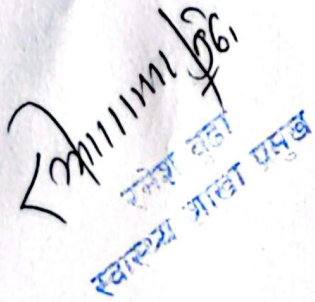 रमेश बुढा
स्वास्थ्य शाखा प्रमुख